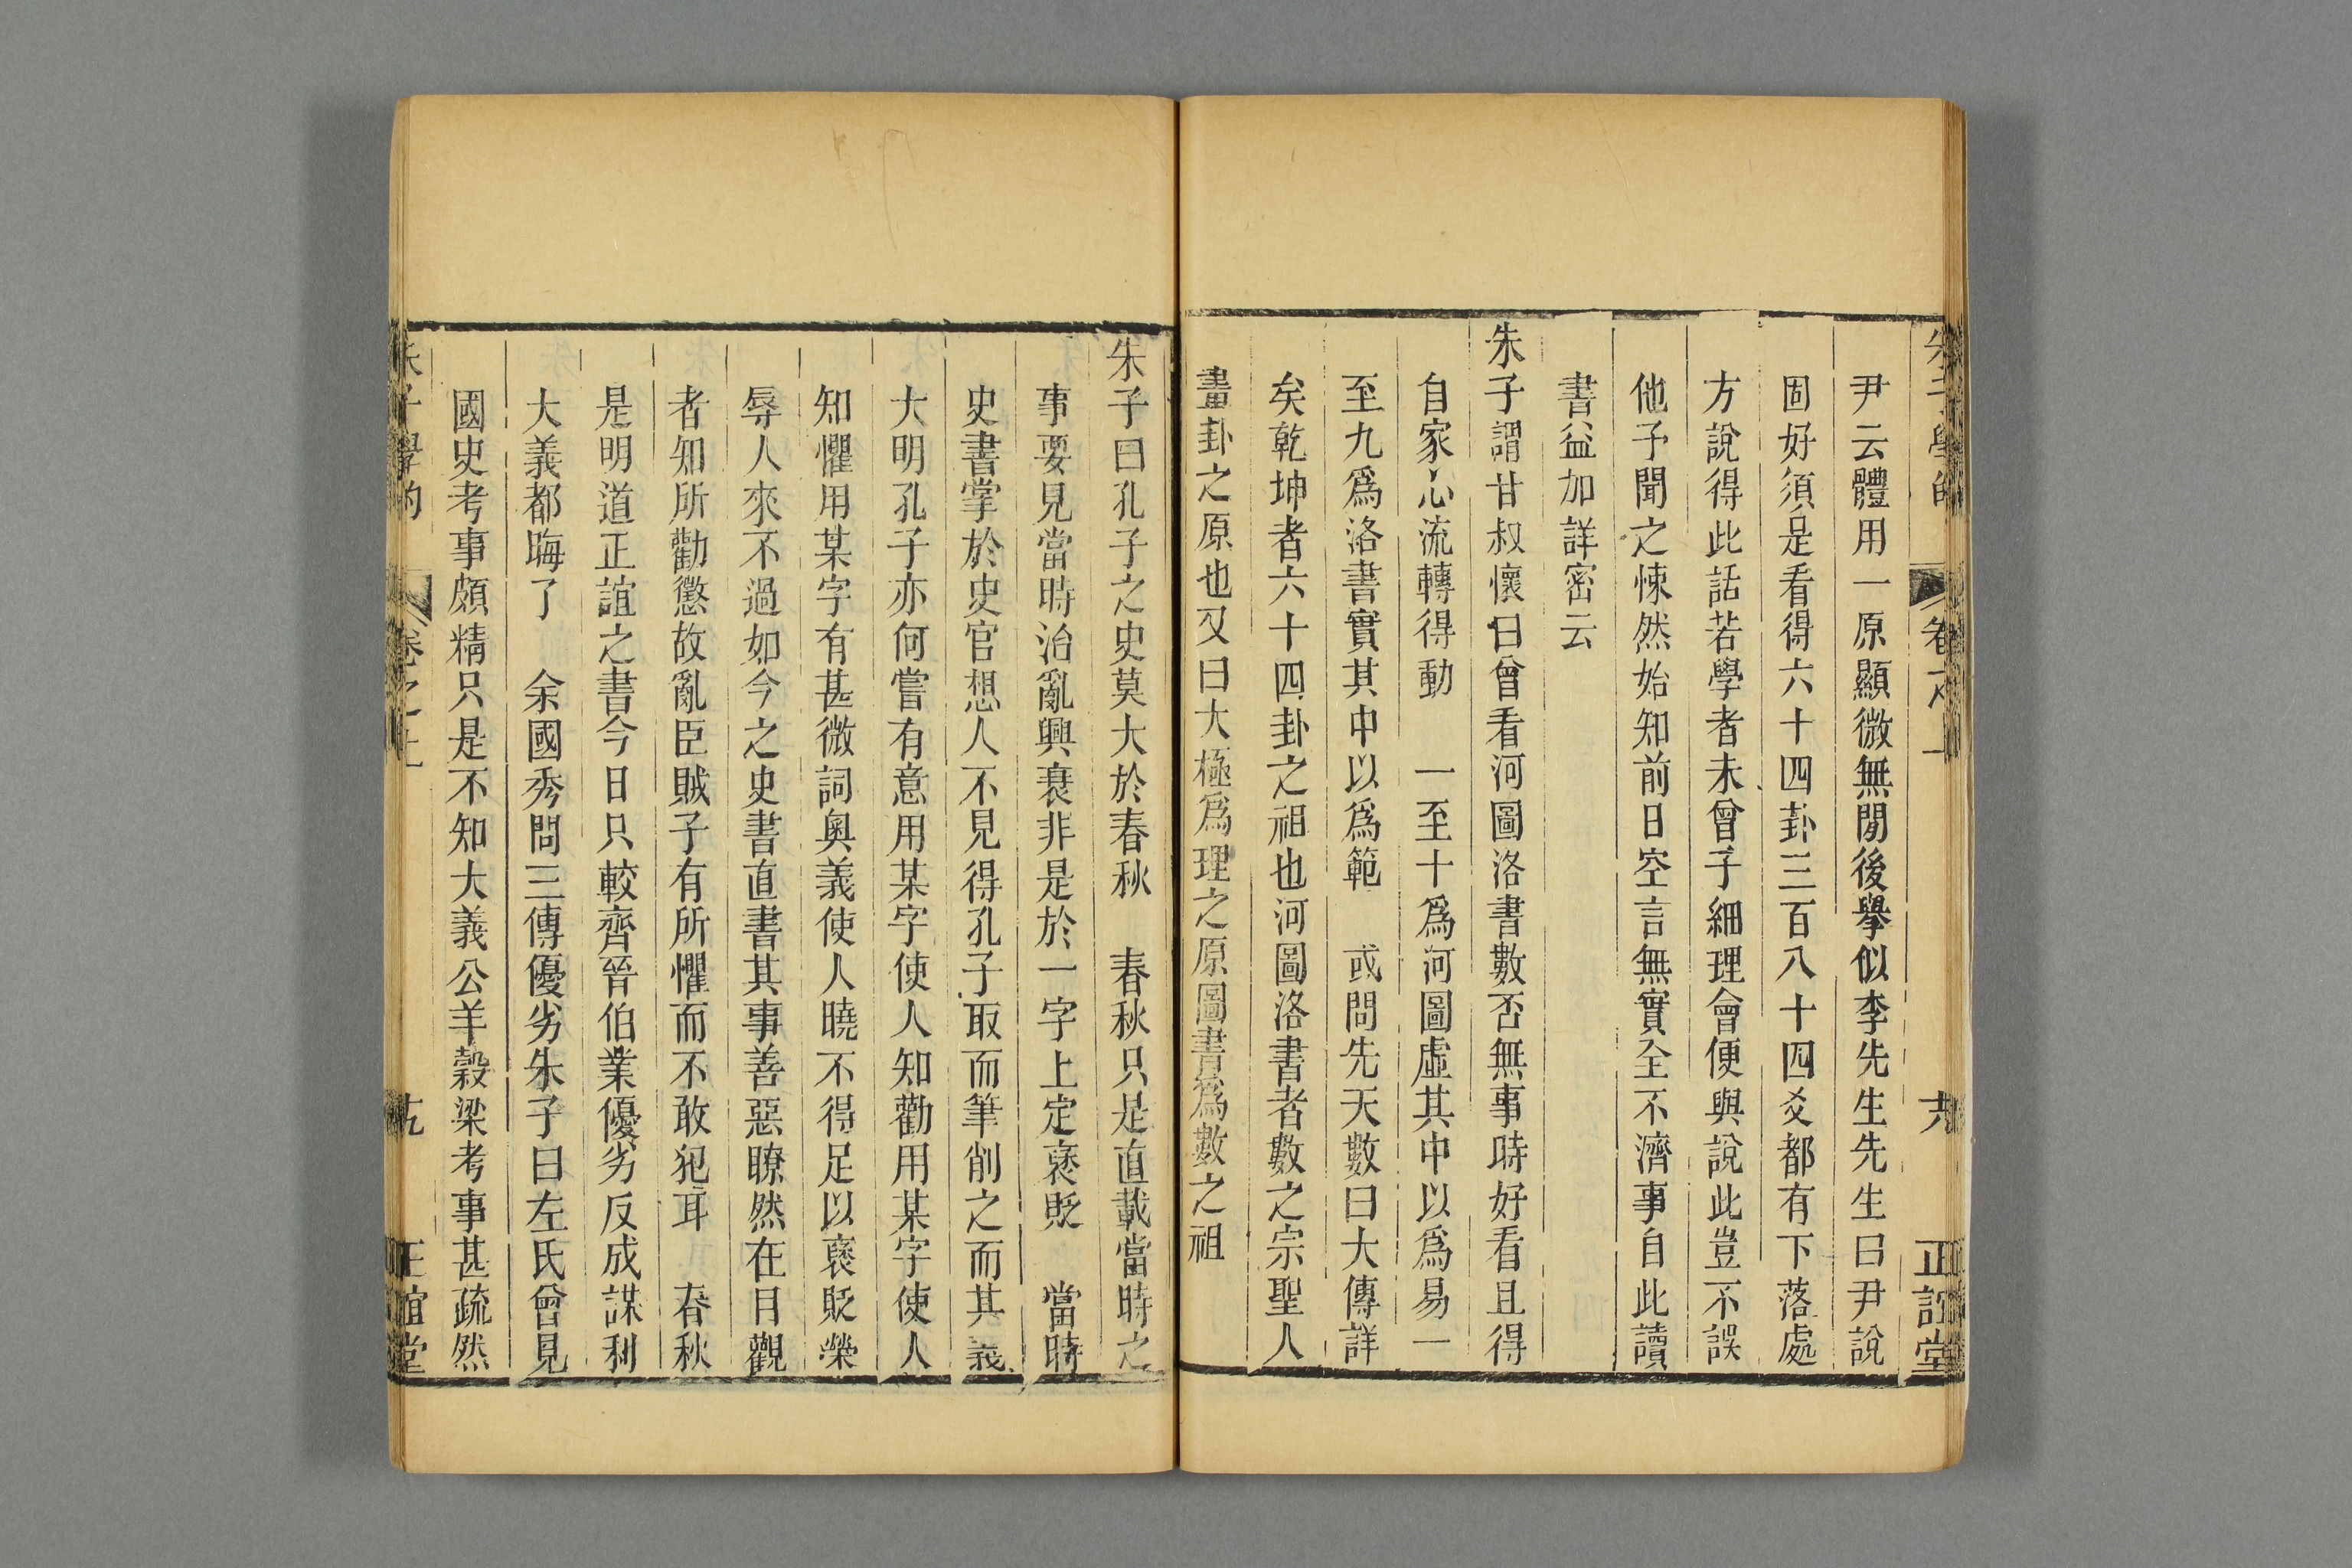 朱子學的 卷之上 六 正誼堂
尹云體用一原顯微無閒後舉似李先生先生曰尹說
固好須是看得六十四卦三百八十四爻都有下落處
方說得此話若學者未曾子細理會便與說此豈不誤
他予聞之悚然始知前日空言無實全不濟事自此讀
書益加詳密云
朱子謂甘叔懷曰曾看河圖洛書數否無事時好看且得
自家心流轉得動　一至十爲河圖虛其中以爲易一
至九爲洛書實其中以爲範　或問先天數曰大傳詳
矣乾坤者六十四卦之祖也河圖洛書者數之宗聖人
畫卦之原也又曰大極爲理之原圖書爲數之祖
朱子曰孔子之史莫大於春秋　春秋只是直載當時之
事要見當時治亂興衰非是於一字上定襃貶　當時
史書掌於史官想人不見得孔子取而筆削之而其義
大明孔子亦何嘗有意用某字使人知勸用某字使人
知懼用某字有甚微詞奧義使人曉不得足以襃貶榮
辱人來不過如今之史書直書其事善惡瞭然在目觀
者知所勸懲故亂臣賊子有所懼而不敢犯耳　春秋
是明道正誼之書今日只較齊晉伯業優劣反成謀利
大義都晦了　余國秀問三傳優劣朱子曰左氏曾見
國史考事頗精只是不知大義公羊穀梁考事甚疏然
朱子學的 卷之上 正誼堂